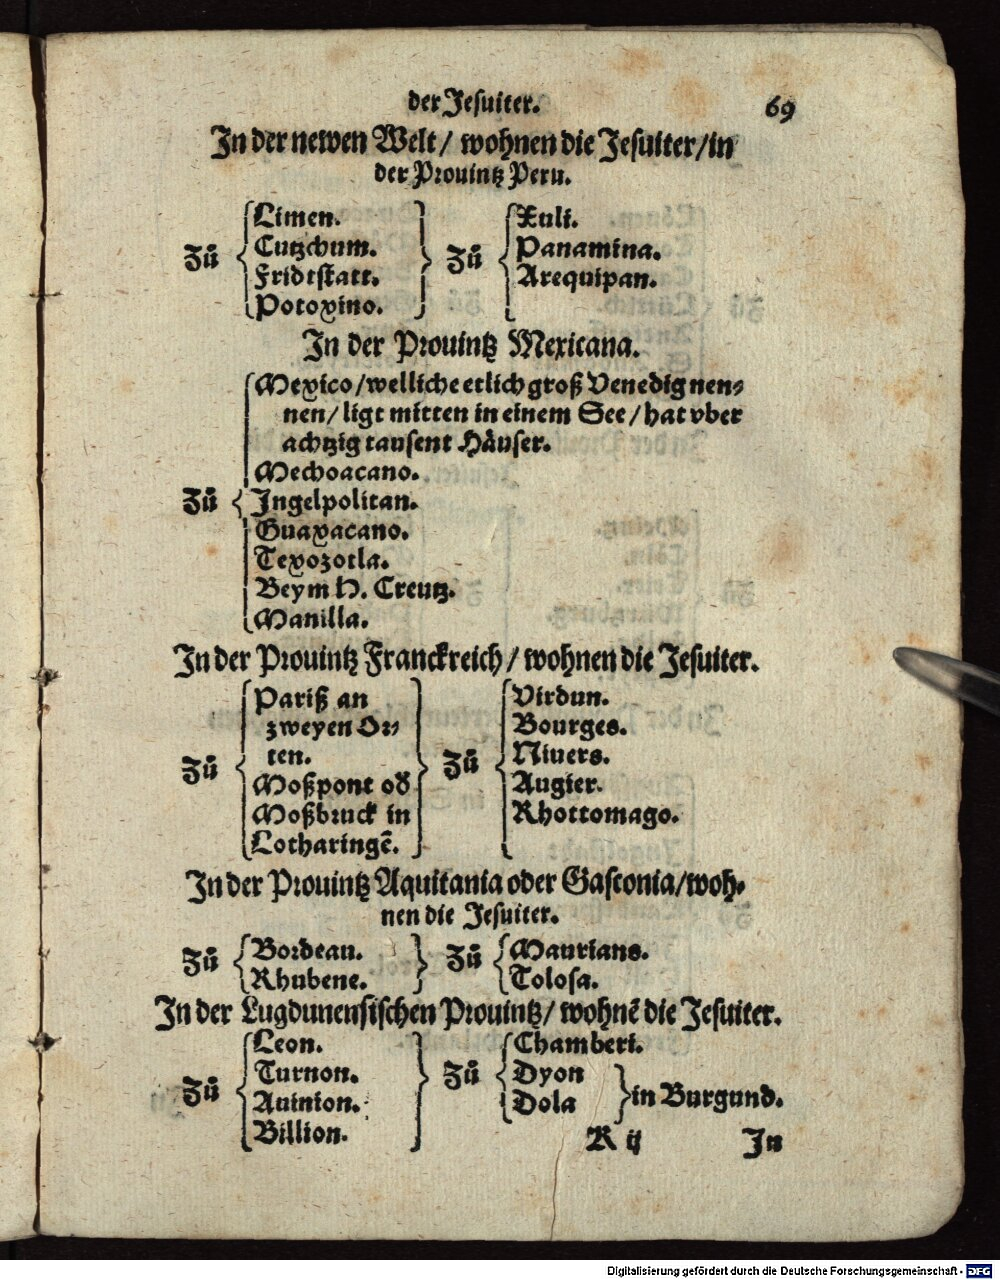 der Jesuiter. 69
In der newen Welt / wohnen die Jesuiter / in
der Prouintz Peru.
Zů
Limen.
Cutzchum.
Fridtstatt.
Potoxino.
Zů
Xuli.
Panamina.
Arequipan.
In der Prouintz Mexicana.
Zů
Mexico / welliche etlich groß Venedig nen-
nen / ligt mitten in einem See / hat vber
achtzig tausent Häuser.
Mechoacano.
Ingelpolitan.
Guaxacano.
Texozotla.
Beym H. Creutz.
Manilla.
In der Prouintz Franckreich / wohnen die Jesuiter.
Zů
Pariß an
zweyen Or-
ten.
Moßpont od
Moßbruck in
Lotharingē.
Zů
Virdun.
Bourges.
Niuers.
Augier.
Rhottomago.
In der Prouintz Aquitania oder Gasconia / woh-
nen die Jesuiter.
Zů
Bordeau.
Rhubene.
Zů
Maurians.
Tolosa.
In der Lugdunensischen Prouintz / wohnē die Jesuiter.
Zů
Leon.
Turnon.
Auinion.
Billion.
Zů
Chamberi.
Dyon
Dola
in Burgund.
R ij In
Digitalisierung gefördert durch die Deutsche Forschungsgemeinschaft - DFG